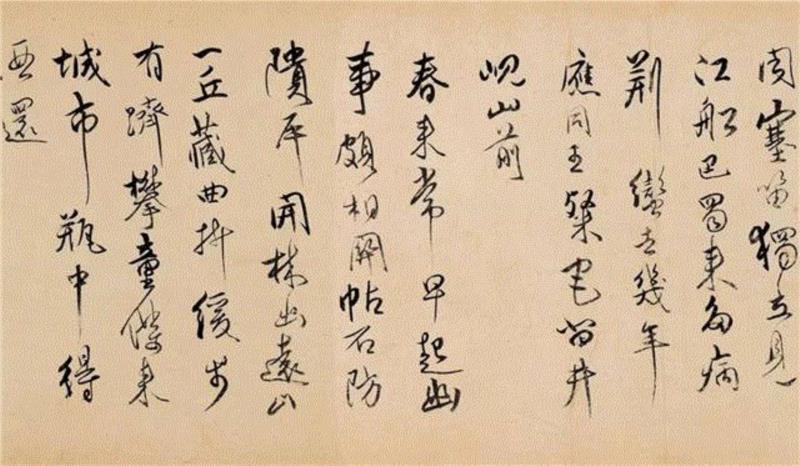 聞塞笛獨立見
江船巴蜀来多病
荆蠻去幾年
應同王粲宅留井
峴山前
春来常早起幽
事頗相關帖石防
隤岸開林出遠山
一丘藏曲折緩步
有躋攀童僕来
城市瓶中得
酒還